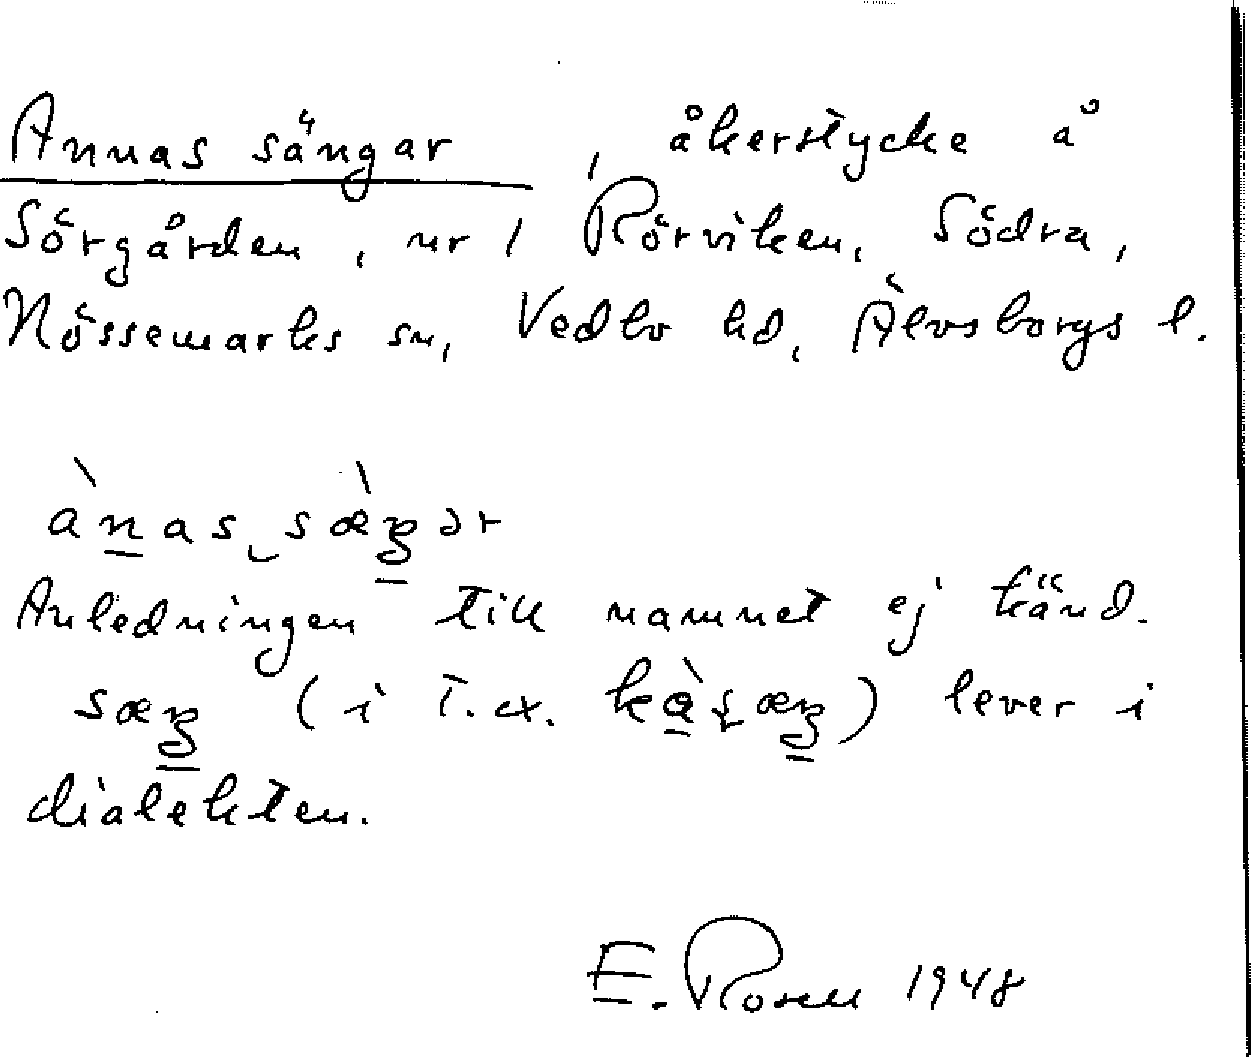 Annas sängar, åkerstycke å
Sörgården, nr 1 Rörviken, Södra,
Nössemarks sn, Vedbo hd, Älvsborgs l.
ànas‿sæ̀ŋər
Anledningen till namnet ej känd.
sæŋ (i t.ex. lever i
dialekten.
E. Rosen 1948